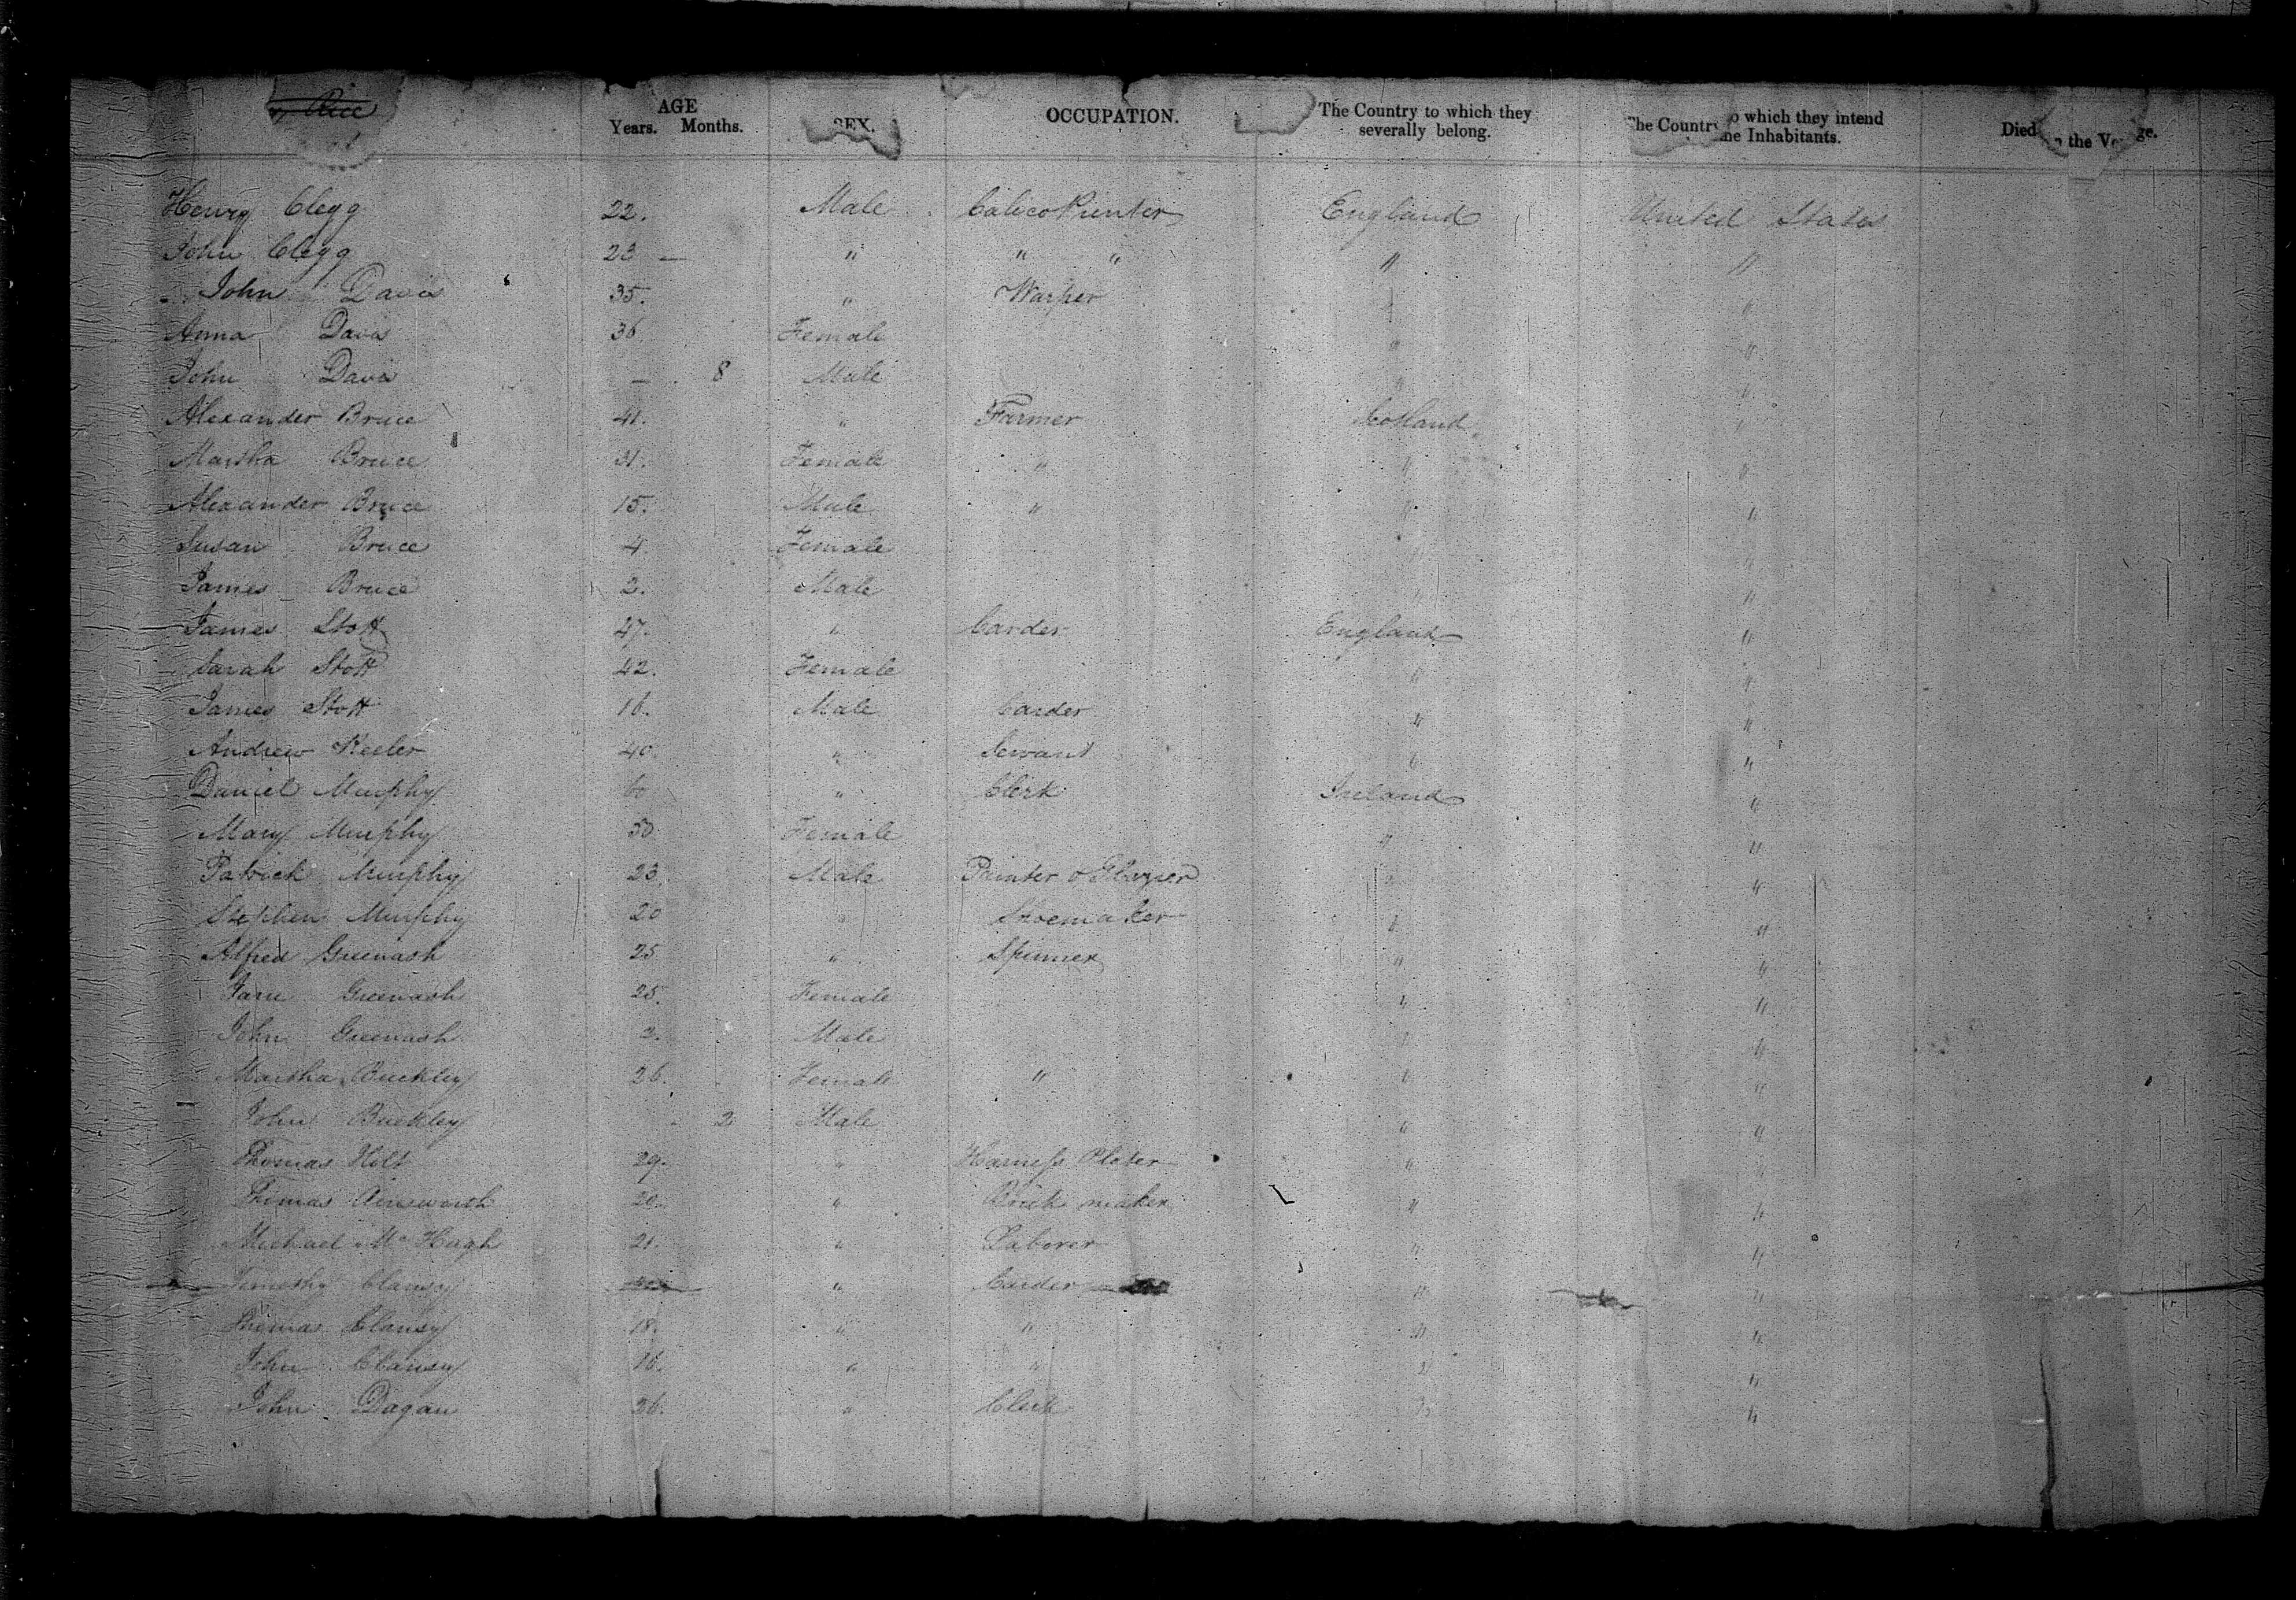 Rice
AGE SEX. OCCUPATION. The Country to which they severally belong. The Country to which they intend Inhabitants. Died the
Years. Months.
Henry Clegg 22. Male Calico Printer England United States
John Clegg 23 — " " " " "
John Davis 35. " Warper "
Anna Davis 36 Female " "
John Davis — 8 Male " "
Alexander Bruce 41. " Farmer Scotland "
Martha Bruce 31. Female " " "
Alexander Bruce 15. Male " " "
Susan Bruce 4 Female " "
James Bruce 2. Male " "
James Stott 47. " Carder England "
Sarah Stott 42. Female " "
James Stott 16. Male Carder " "
Andrew Keeler 40. " Servant " "
Daniel Murphy " Clerk Ireland "
Mary Murphy 50 Female " "
Patrick Murphy 23. Male Painter & Glazier " "
Stephen Murphy 20 " Shoemaker " "
Alfred Greenash 25 " Spinner " "
Jane Greenash 25. Female " "
John Greenash 2. Male " "
Martha Buckley 26. Female " " "
John Buckley 2 Male " "
Thomas Holt 29. " Harness Plater " "
Thomas Ainsworth 20. " Brick maker " "
Michael Mc Hugh 21. " Laborer " "
Timothy Clansy " Carder " "
Thomas Clansy 18. " " " "
John Clansy 16. " " " "
John Dagan 26. " Clerk " "